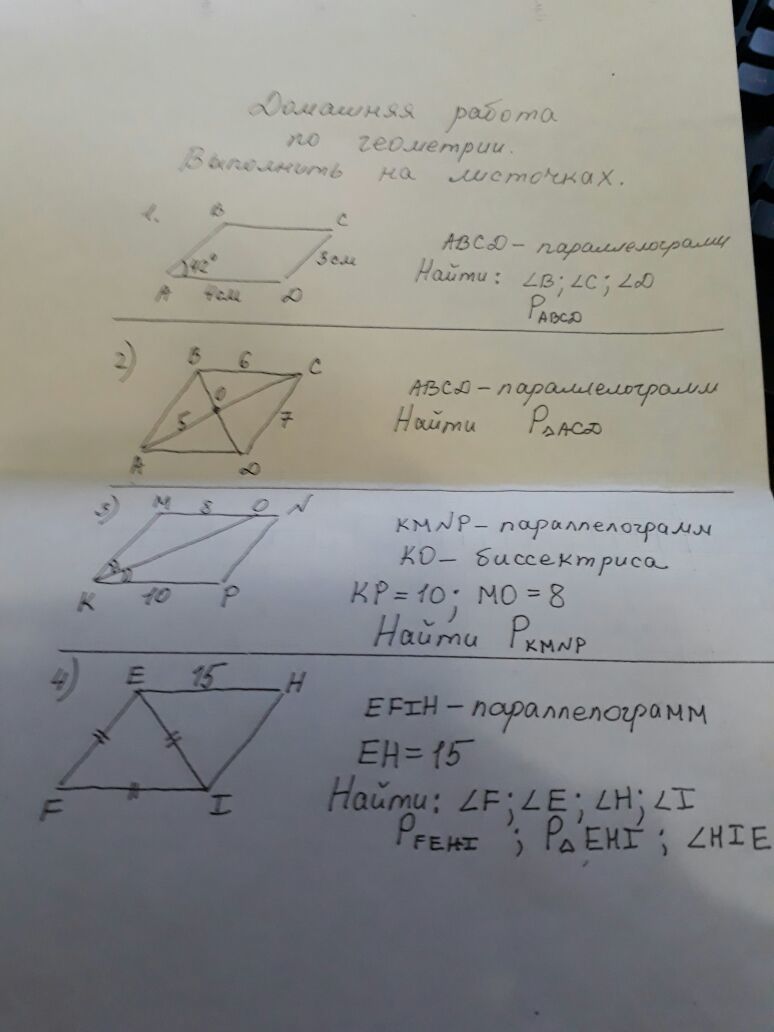 Домашняя работа
по геометрии.
Выполнить на листочках.
1.
B
C
42°
3см
A
4см
D
ABCD – параллелограмм
Найти: ∠B; ∠C; ∠D
P ABCD
2)
B
6
C
O
5
7
A
D
ABCD – параллелограмм
Найти P△ACD
3)
M
8
O
N
K
10
P
KMNP – параллелограмм
KO – биссектриса
KP = 10; MO = 8
Найти P KMNP
4)
E
15
H
F
I
EFIH – параллелограмм
EH = 15
Найти: ∠F; ∠E; ∠H; ∠I
P FEHI ; P△ EHI ; ∠HIE